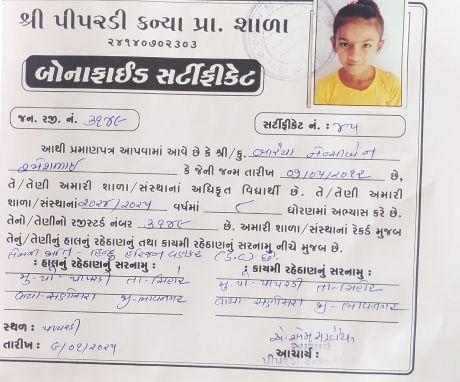 શ્રી પીપરડી કન્યા પ્રા. શાળા
૨૪૧૪૦૭૦૨૩૦૩
બોનાફાઈડ સર્ટીફીકેટ
જન. રજી. નં. ૩૧૪૯ સર્ટીફીકેટ નં. : ૪૫
આથી પ્રમાણપત્ર આપવામાં આવે છે કે શ્રી/કુ. બારૈયા
કે જેની જન્મ તારીખ ૦૧/૦૫/૨૦૧૨ છે,
તે/તેણી અમારી શાળા/સંસ્થાનાં અધિકૃત વિદ્યાર્થી છે. તે/તેણી અમારી
શાળા/સંસ્થાનાં ૨૦૨૪/૨૦૨૫ વર્ષમાં ૮ ધોરણમાં અભ્યાસ કરે છે.
તેનો/તેણીનો રજીસ્ટર્ડ નંબર ૩૧૪૯ છે. અમારી શાળા/સંસ્થાનાં રેકર્ડ મુજબ
તેનું/તેણીનું હાલનું રહેઠાણનું તથા કાયમી રહેઠાણનું સરનામુ નીચે મુજબ છે.
તેમની જાતિ - હિન્દુ હરિજન વણકર (S.C) છે.
: હાલનું રહેઠાણનું સરનામુ : : કાયમી રહેઠાણનું સરનામુ :
મુ. પો - પીપરડી તા - સિહોર મુ. પો - પીપરડી તા - સિહોર
વાયા - સણોસરા જી - ભાવનગર વાયા - સણોસરા જી - ભાવનગર
સ્થળ : પીપરડી
તારીખ : ૯/૦૧/૨૦૨૫
આચાર્ય :